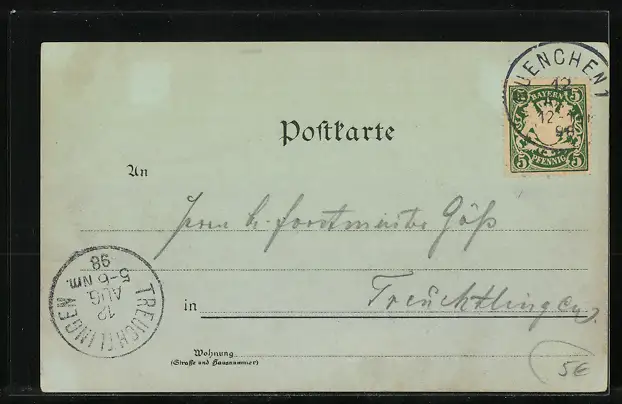 MUENCHEN 1
12
12-1
98
5 BAYERN 5
5 PFENNIG 5
Postkarte
An
Herrn k. Forstmeister Göß
TREUCHTLINGEN
12
AUG.
5-6 Nm.
98
in Treuchtlingen.
Wohnung
(Straße und Hausnummer)
5€